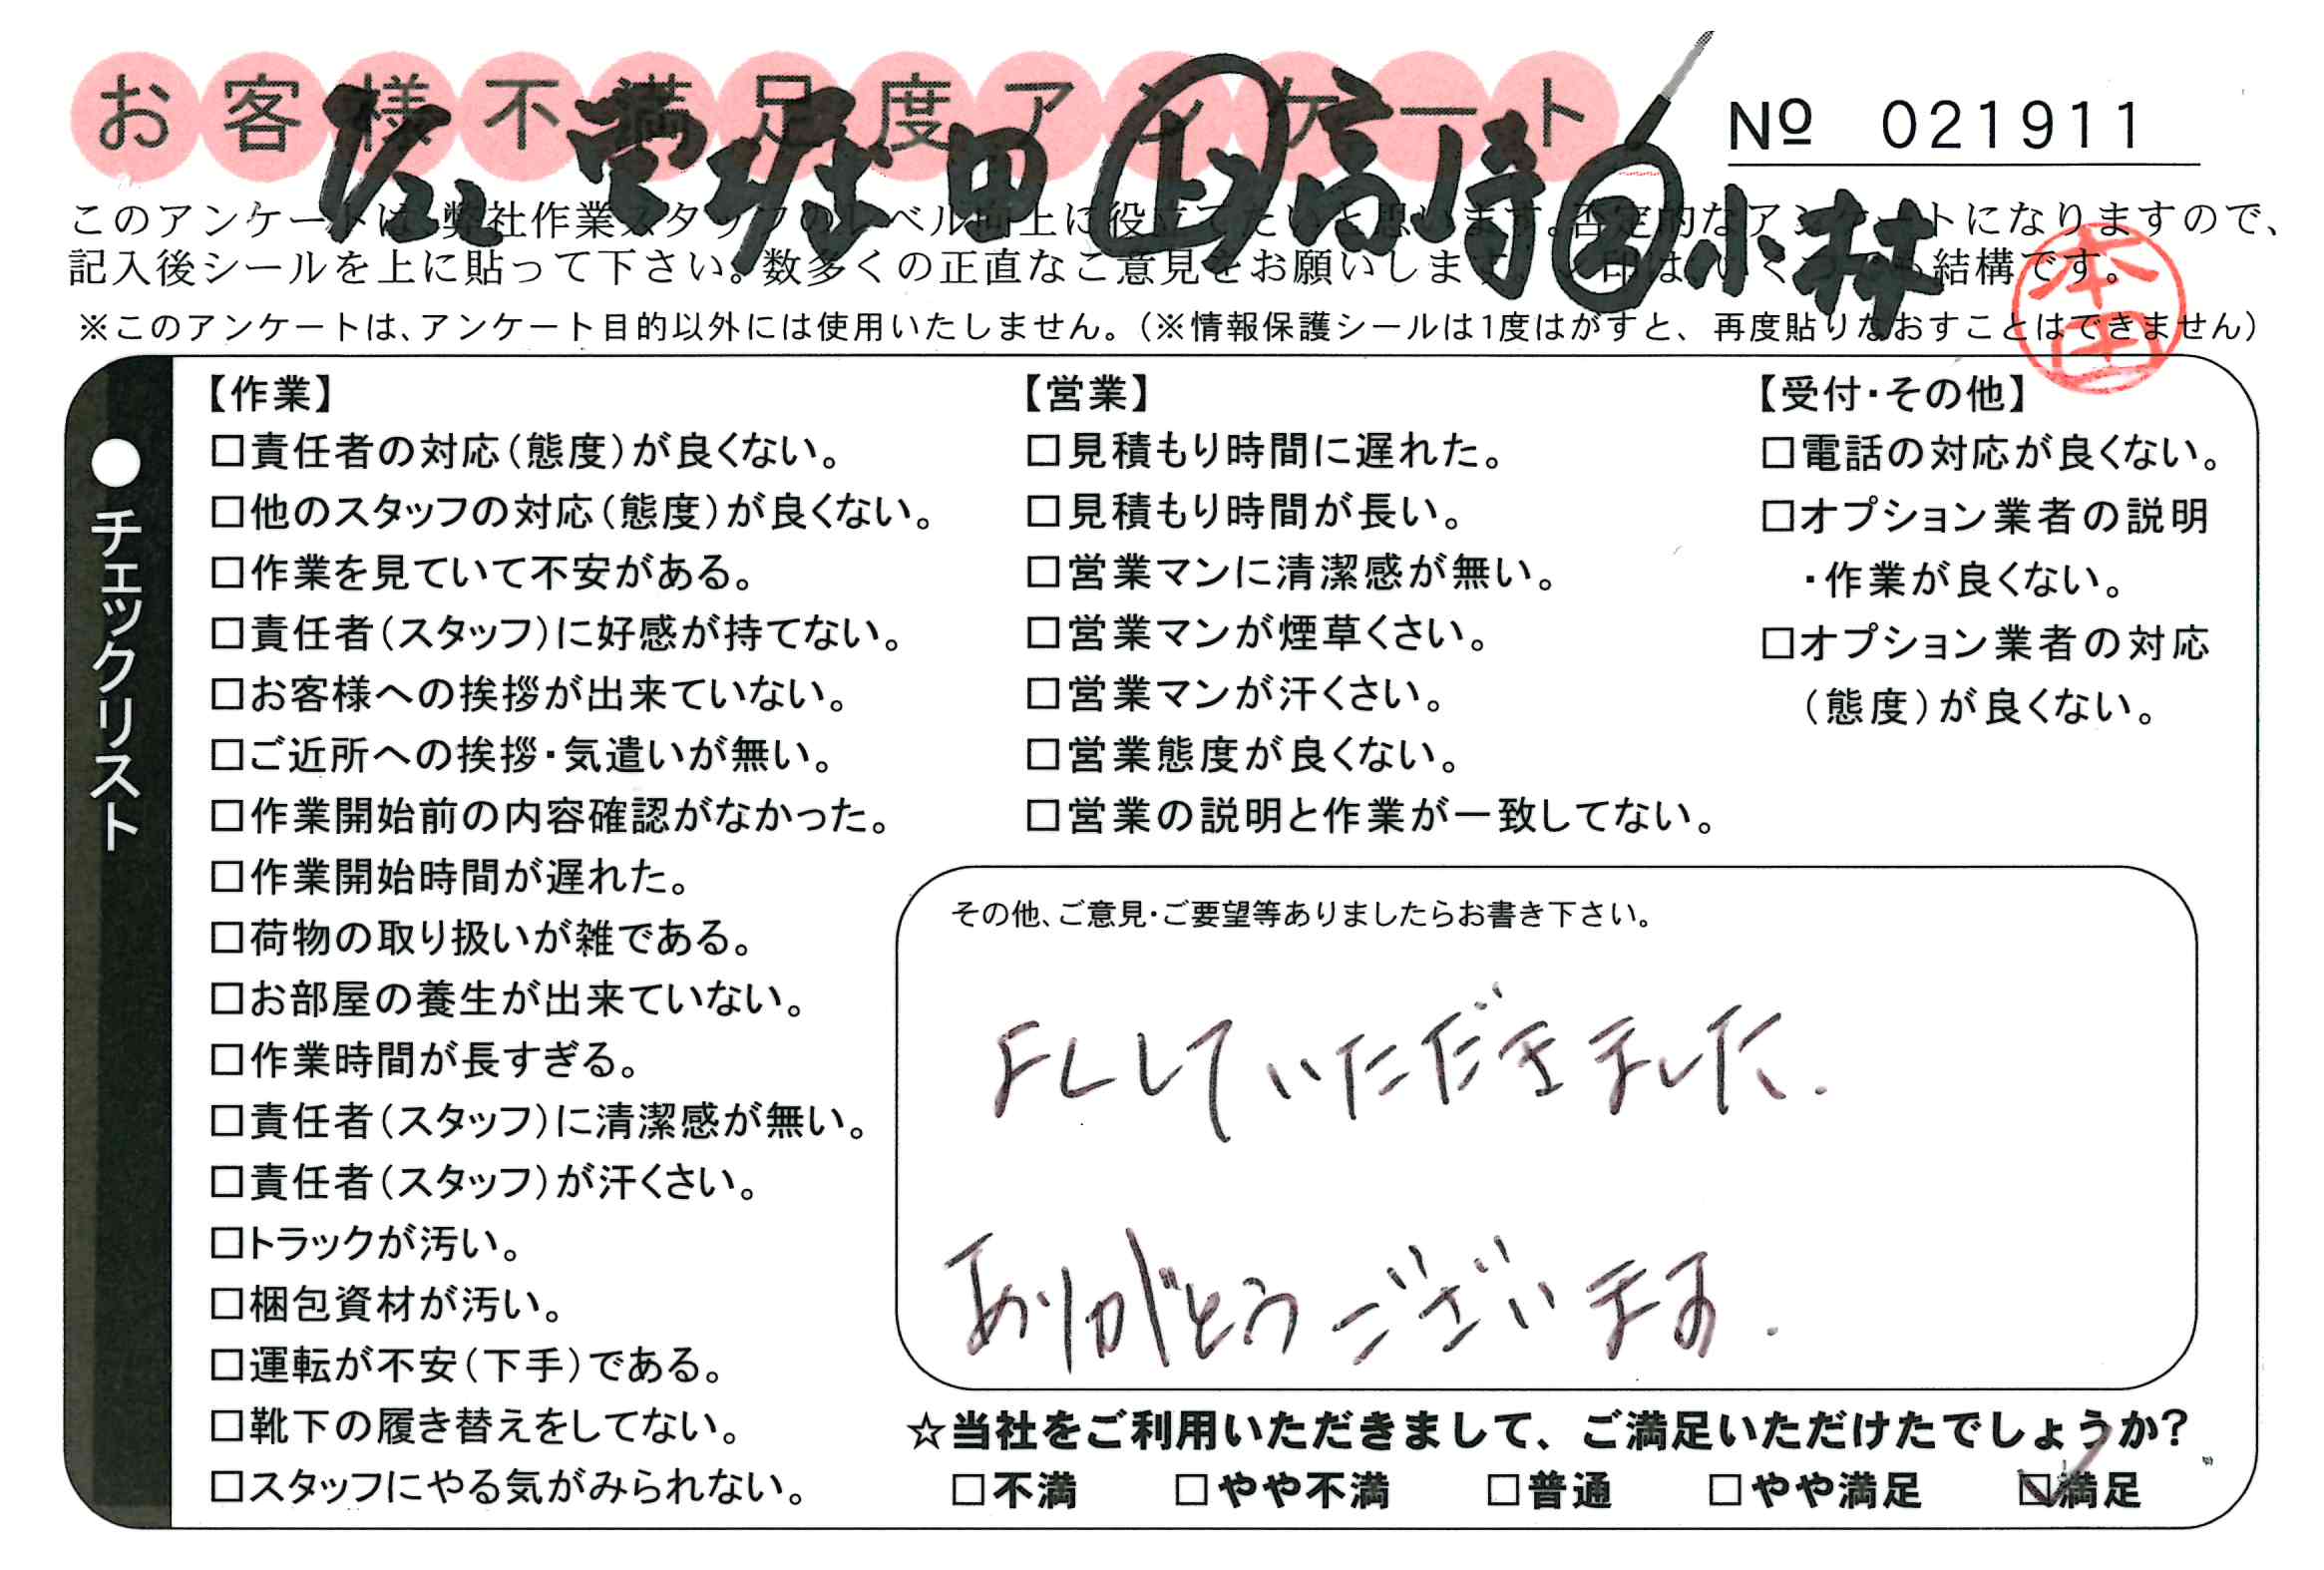 お客様不満足度アンケート
Nº 021911
堀田 上 高崎 小林
このアンケートは、弊社作業スタッフのレベル向上に役立てたいと思います。否定的なアンケートになりますので、
記入後シールを上に貼って下さい。数多くの正直なご意見をお願いします。 印は いくつでも結構です。
本田
※このアンケートは、アンケート目的以外には使用いたしません。（※情報保護シールは1度はがすと、再度貼りなおすことはできません）
●チェックリスト
【作業】
□責任者の対応（態度）が良くない。
□他のスタッフの対応（態度）が良くない。
□作業を見ていて不安がある。
□責任者（スタッフ）に好感が持てない。
□お客様への挨拶が出来ていない。
□ご近所への挨拶・気遣いが無い。
□作業開始前の内容確認がなかった。
□作業開始時間が遅れた。
□荷物の取り扱いが雑である。
□お部屋の養生が出来ていない。
□作業時間が長すぎる。
□責任者（スタッフ）に清潔感が無い。
□責任者（スタッフ）が汗くさい。
□トラックが汚い。
□梱包資材が汚い。
□運転が不安（下手）である。
□靴下の履き替えをしてない。
□スタッフにやる気がみられない。
【営業】
□見積もり時間に遅れた。
□見積もり時間が長い。
□営業マンに清潔感が無い。
□営業マンが煙草くさい。
□営業マンが汗くさい。
□営業態度が良くない。
□営業の説明と作業が一致してない。
【受付・その他】
□電話の対応が良くない。
□オプション業者の説明
・作業が良くない。
□オプション業者の対応
（態度）が良くない。
その他、ご意見・ご要望等ありましたらお書き下さい。
よくしていただきました.
ありがとうございます.
☆当社をご利用いただきまして、ご満足いただけたでしょうか？
□不満 □やや不満 □普通 □やや満足 ☑満足